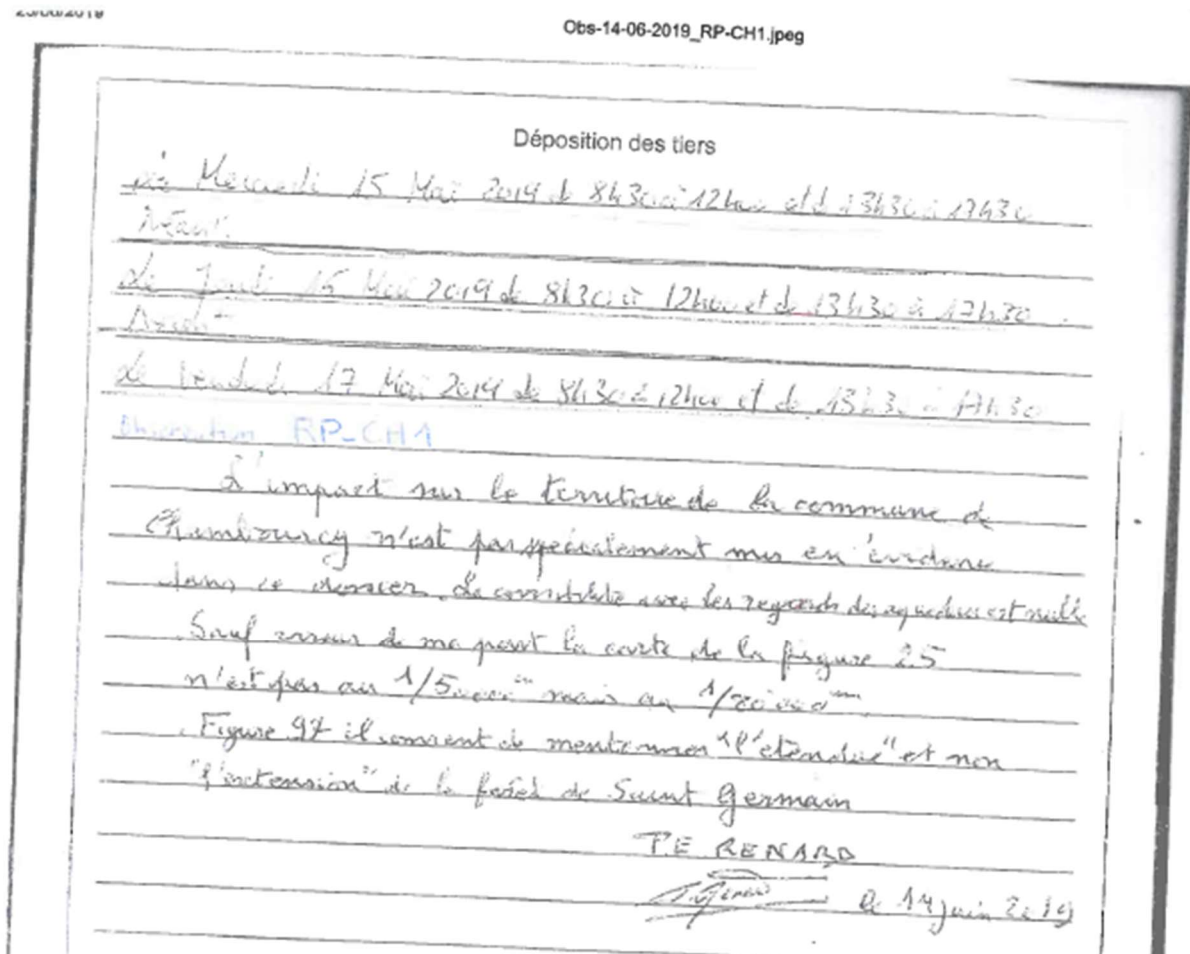 Obs-14-06-2019_RP-CH1.jpeg
Déposition des tiers
Mercredi 15 Mai 2019 de 8h30 à 12h00 et de 13h30 à 17h30
Néant
Le Jeudi 16 Mai 2019 de 8h30 à 12h00 et de 13h30 à 17h30
Le Vendredi 17 Mai 2019 de 8h30 à 12h00 et de 13h30 à 17h30
Observation RP-CH1
L'impact sur le territoire de la commune de
Chambourcy n'est pas spécialement mis en évidence
dans ce dossier. La avec les regards des aqueducs est nulle
Sauf erreur de ma part la carte de la figure 25
n'est pas au 1/50000ème mais au 1/20000ème
. Figure 97 il convient de mentionner "l'étendue" et non
"l'extension" de la forêt de Saint Germain
P.E RENARD
le 14 juin 2019